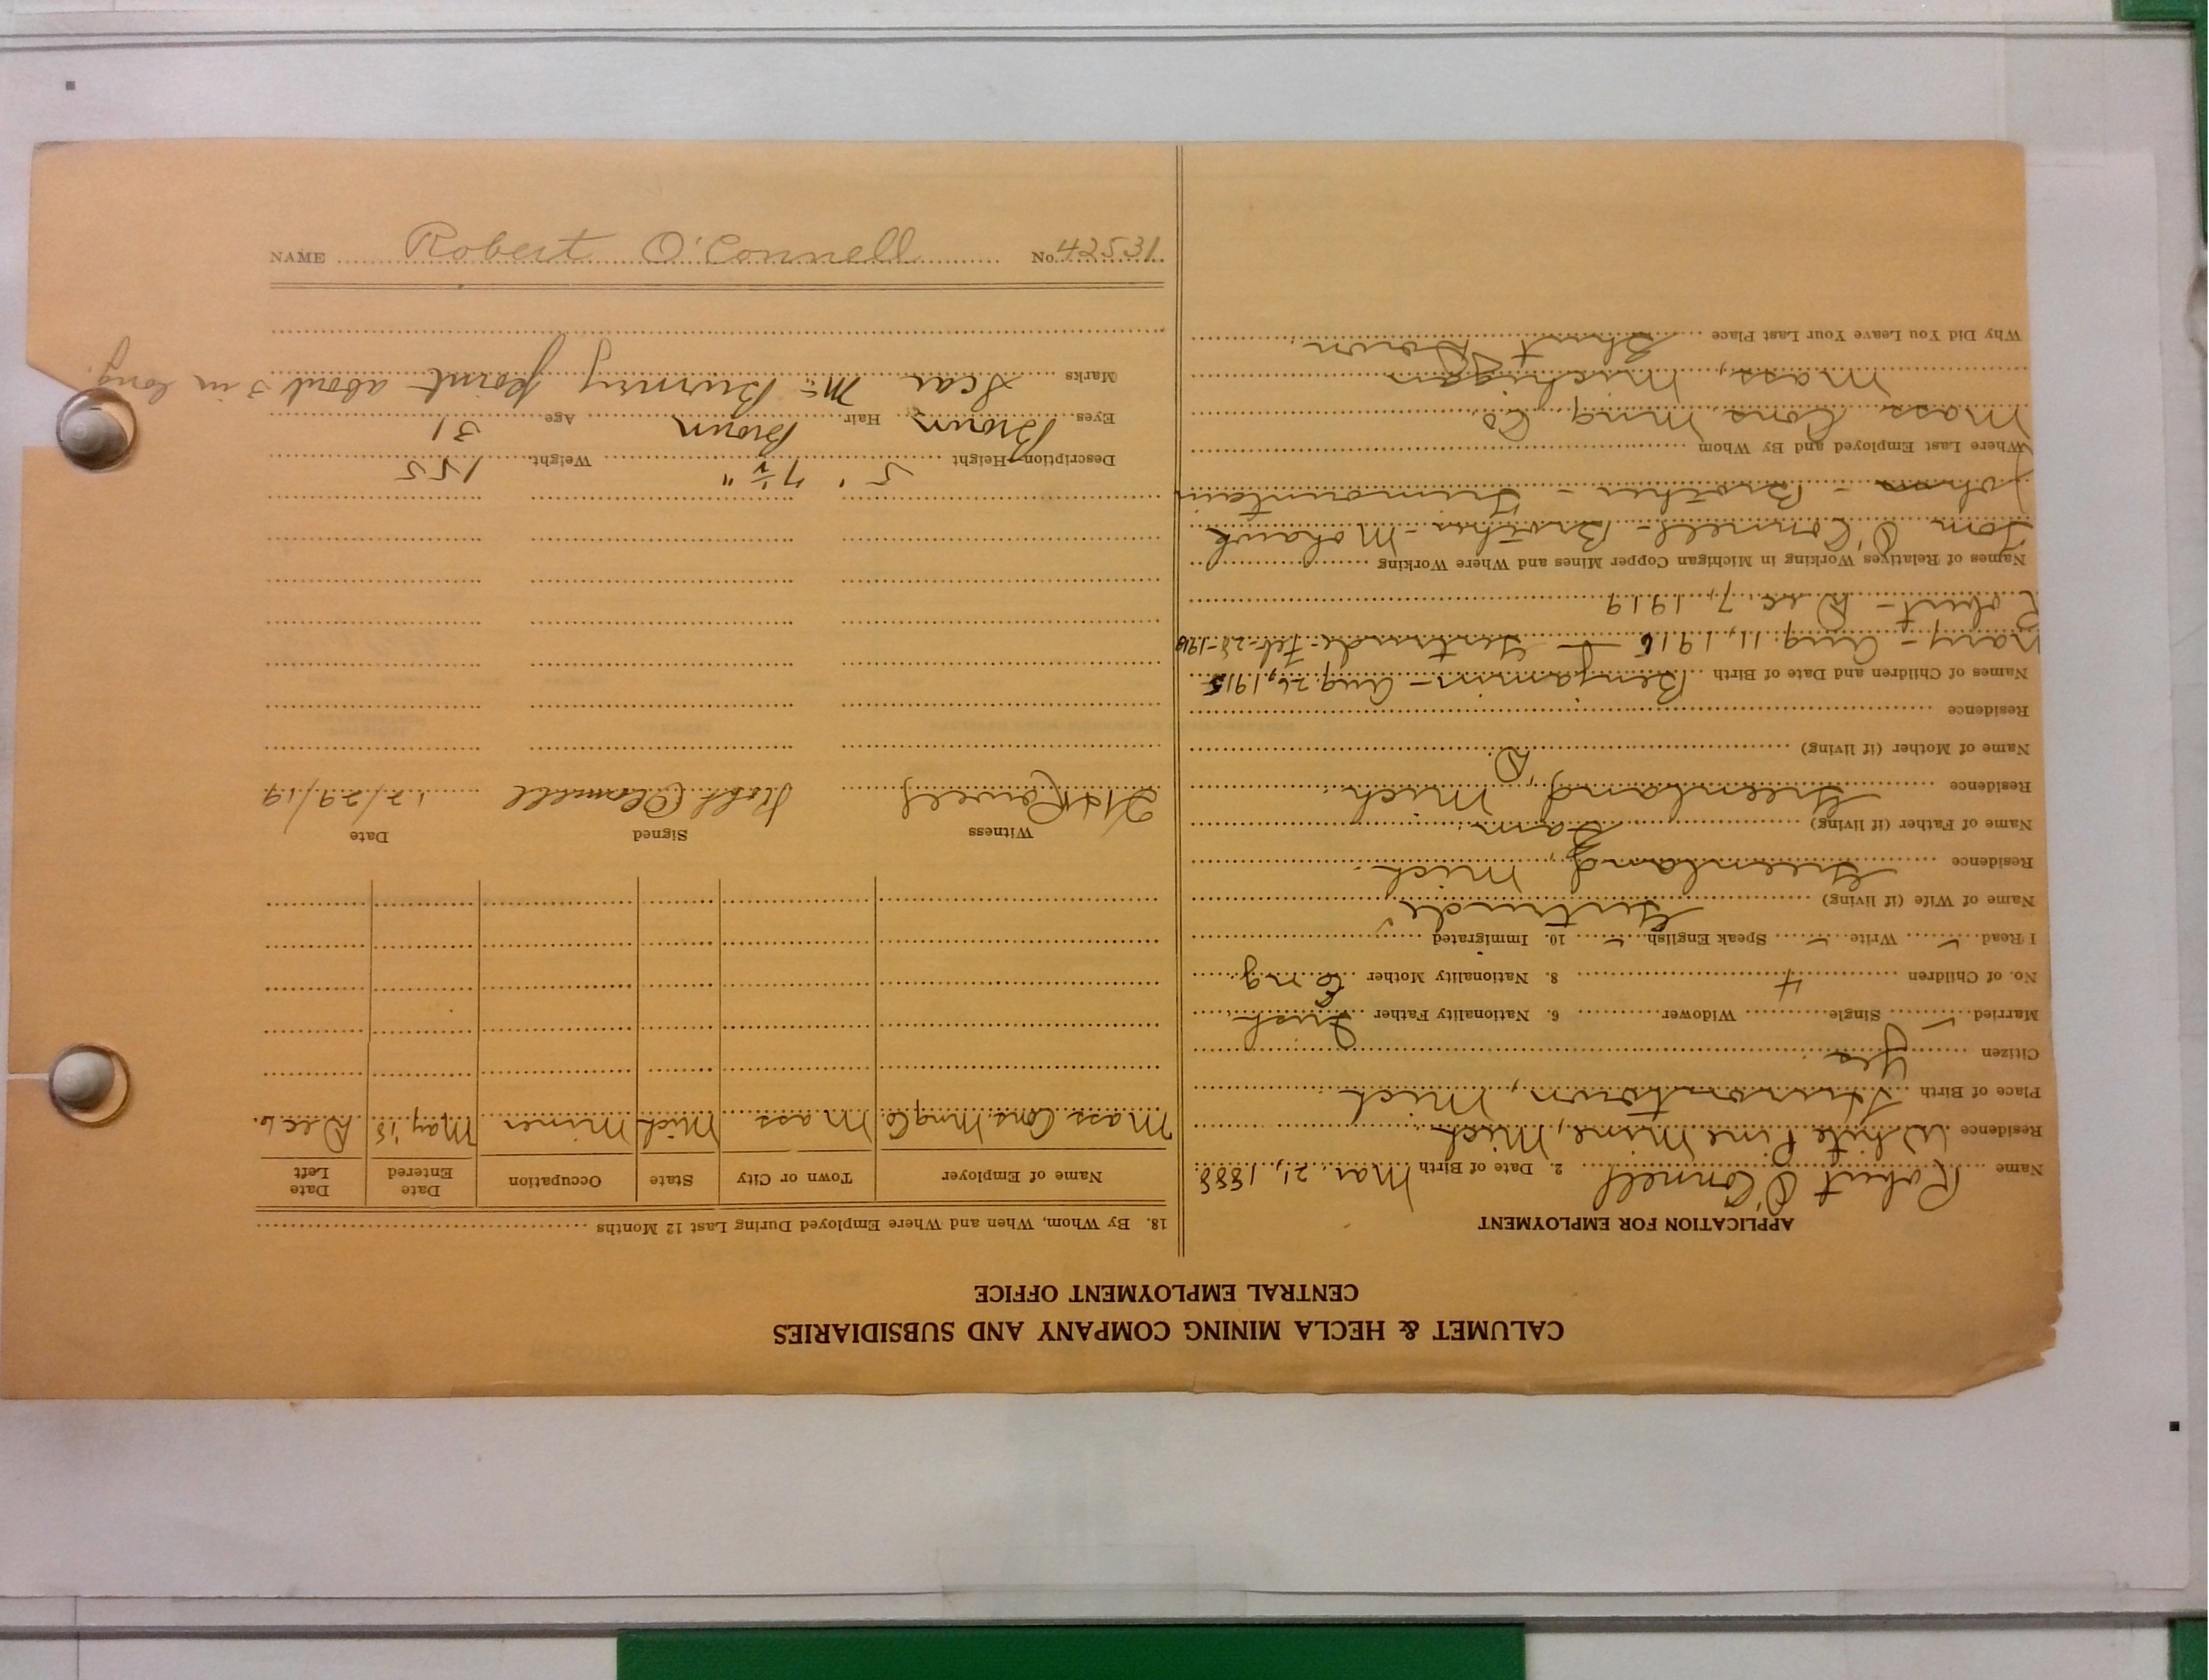 CALUMET & HECLA MINING COMPANY AND SUBSIDIARIES
CENTRAL EMPLOYMENT OFFICE
APPLICATION FOR EMPLOYMENT
Name Robert O'Connell 2. Date of Birth Mar. 21, 1888
Residence White Pine Mine, Mich
Place of Birth Hurontown, Mich
Citizen Yes
Married ✓ Single Widower 6. Nationality Father Irish
No. of Children 4 8. Nationality Mother Eng
I Read ✓ Write ✓ Speak English ✓ 10. Immigrated
Name of Wife (if living) Gertrude
Residence Greenland, Mich.
Name of Father (if living) Sam
Residence Greenland, Mich.
Name of Mother (if living) D.
Residence
Names of Children and Date of Birth Benjamin - Aug. 26, 1915
Mary - Aug. 11, 1916 - Gertrude - Feb-28-1918
Robert - Dec. 7, 1919
Names of Relatives Working in Michigan Copper Mines and Where Working
Tom O'Connell - Brother - Mohawk
John - Brother - Trimountain
Where Last Employed and By Whom
Mass Cons. Ming Co
Mass, Michigan
Why Did You Leave Your Last Place Shut Down
18. By Whom, When and Where Employed During Last 12 Months
Name of Employer Town or City State Occupation Date Entered Date Left
Mass Cons. Ming Co Mass Mich Miner May '18 Dec 6.
Witness Signed Date
Robt O'Connell 12/29/19
Description—Height 5' 7½" Weight 155
Eyes Brown Hair Brown Age 31
Marks Scar Burney point about 3 in long.
NAME Robert O'Connell No. 42531